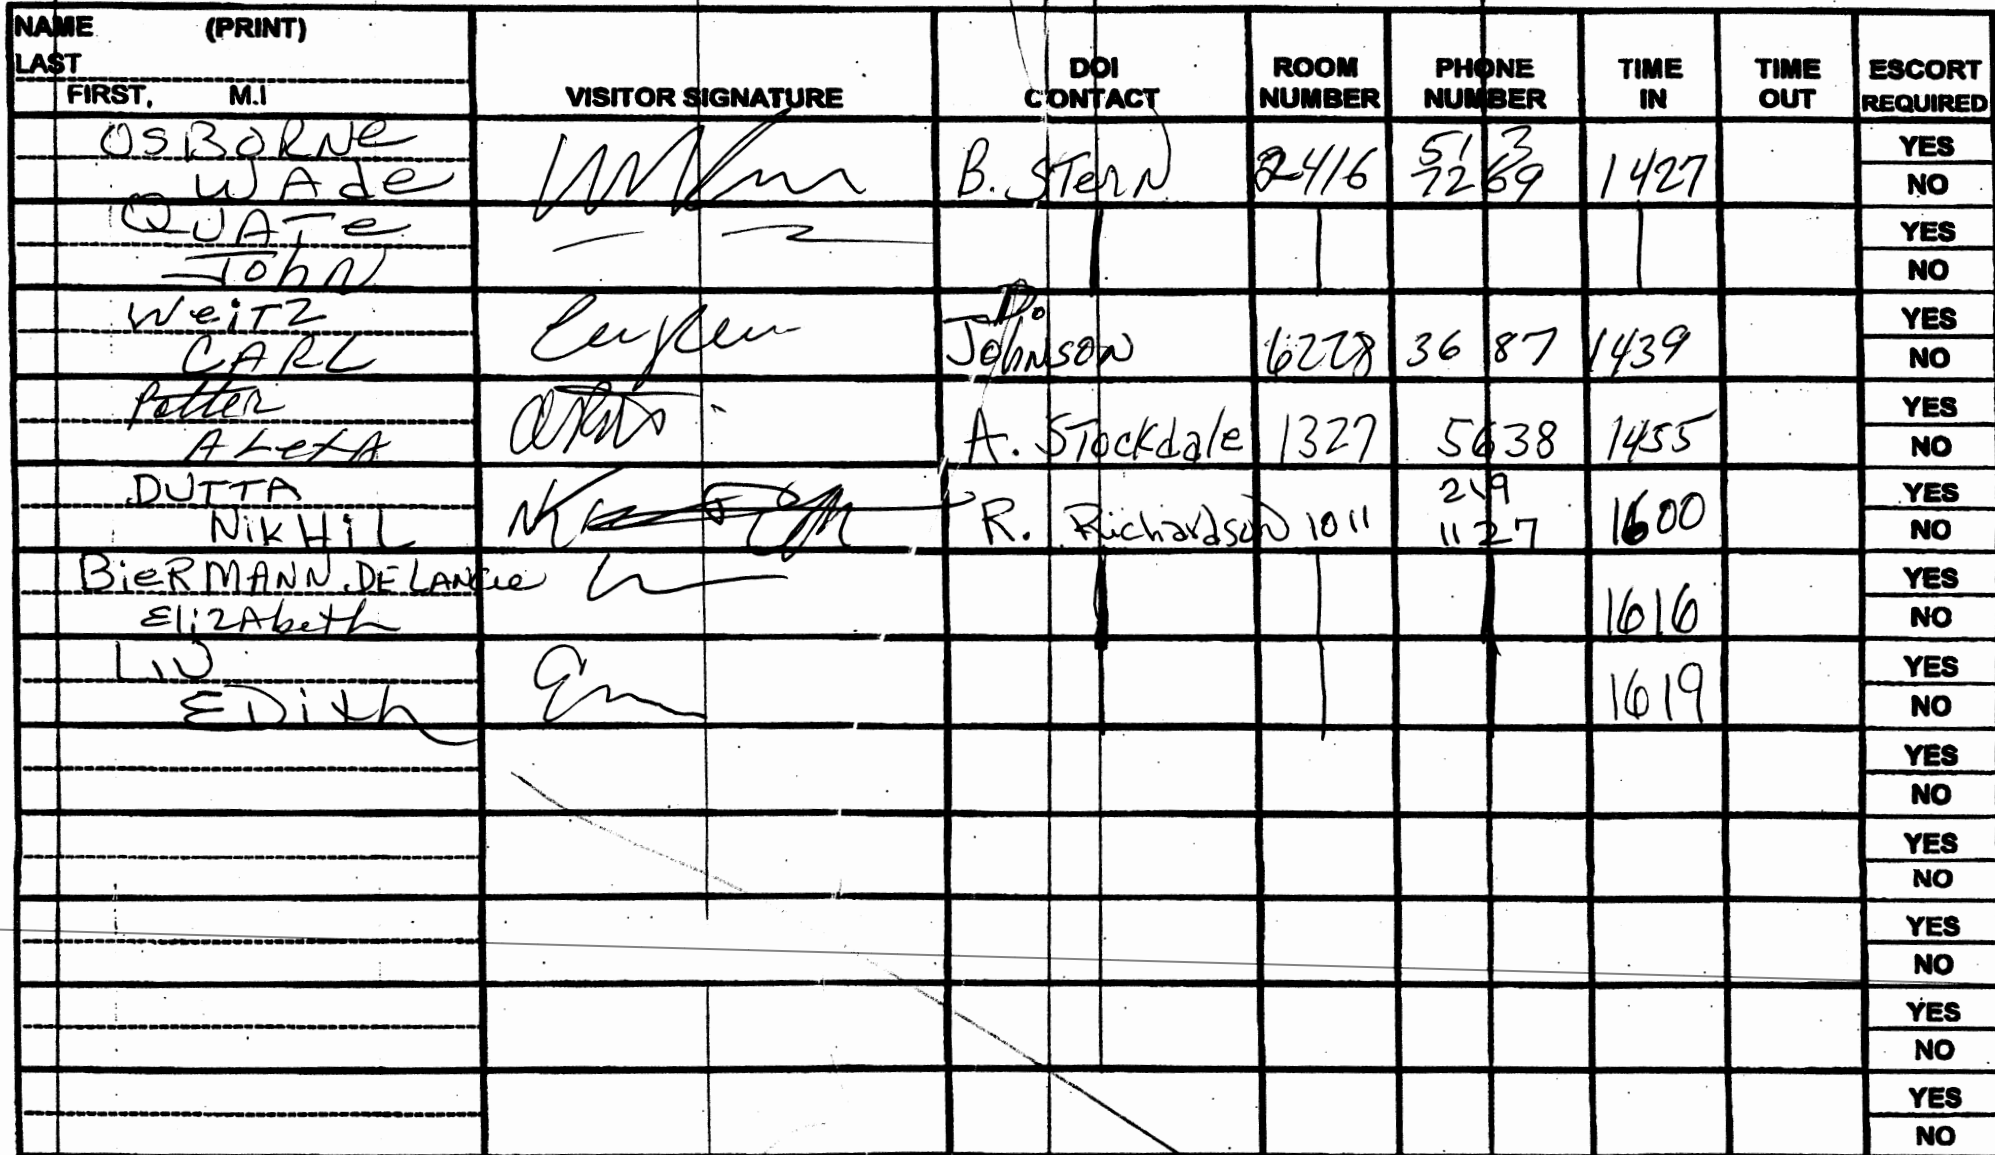 NAME (PRINT)
LAST
FIRST, M.I
VISITOR SIGNATURE
DOI CONTACT
ROOM NUMBER
PHONE NUMBER
TIME IN
TIME OUT
ESCORT REQUIRED
OSBORNE
WAde
B. STerN 2416 513 7269 1427
YES
NO
QUATe
John
YES
NO
WeiTZ
CARL
D. JohnsoN 6228 3687 1439
YES
NO
Potter
ALexA
A. STockdale 1327 5638 1455
YES
NO
DUTTA
NikHiL
R. Richardson 1011 219 1127 1600
YES
NO
BieRMANN DELANCie
ElizAbeth
1616
YES
NO
LIU
EDith
1619
YES
NO
YES
NO
YES
NO
YES
NO
YES
NO
YES
NO